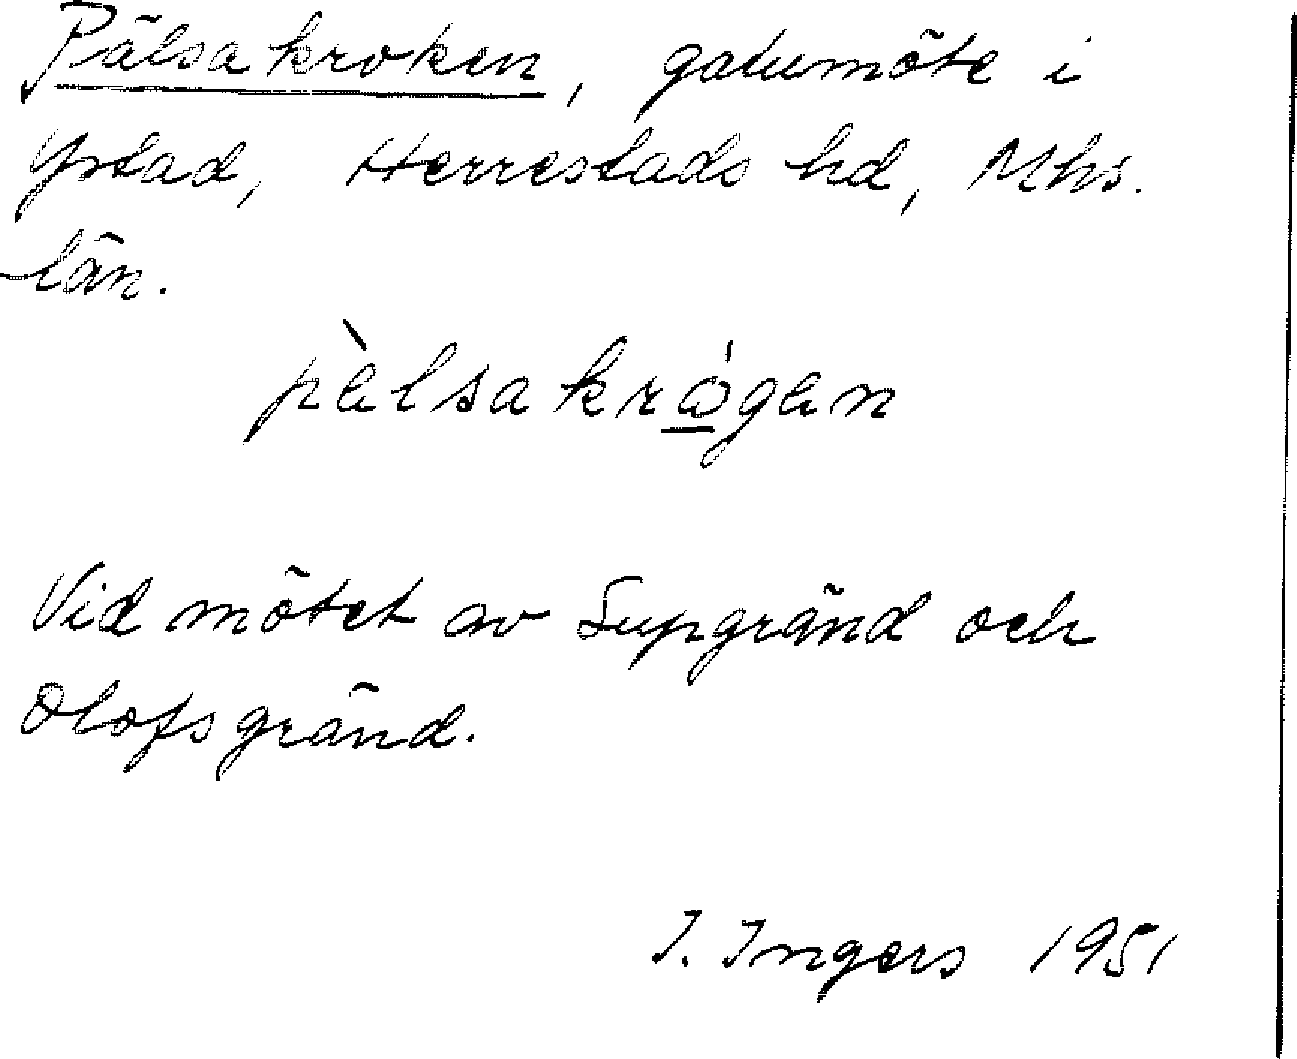 Pälsakroken, gatumöte i
Ystad, Herrestads hd, Mhs.
län.
pèlsakrǫ́gen
Vid mötet av Supgränd och
Olofsgränd.
I. Ingers 1951